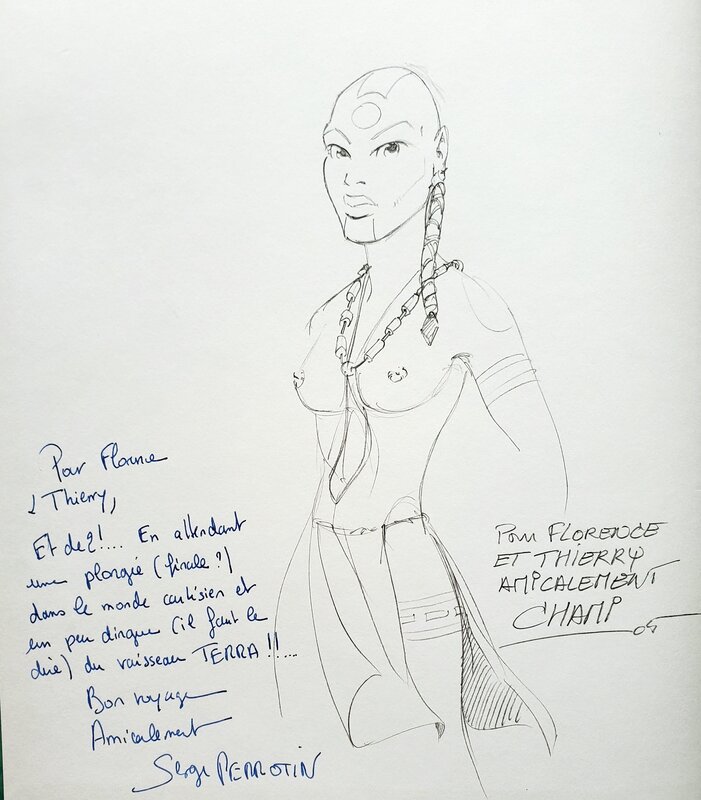 Pour Florence
& Thierry,
Et de 2!.... En attendant
une plongée (finale ?)
dans le monde cartésien et
un peu dingue (il faut le
dire) du vaisseau TERRA !!...
Bon voyage
Amicalement
Serge PERROTIN
Pour FLORENCE
ET THIERRY
AMICALEMENT
CHAMI
05